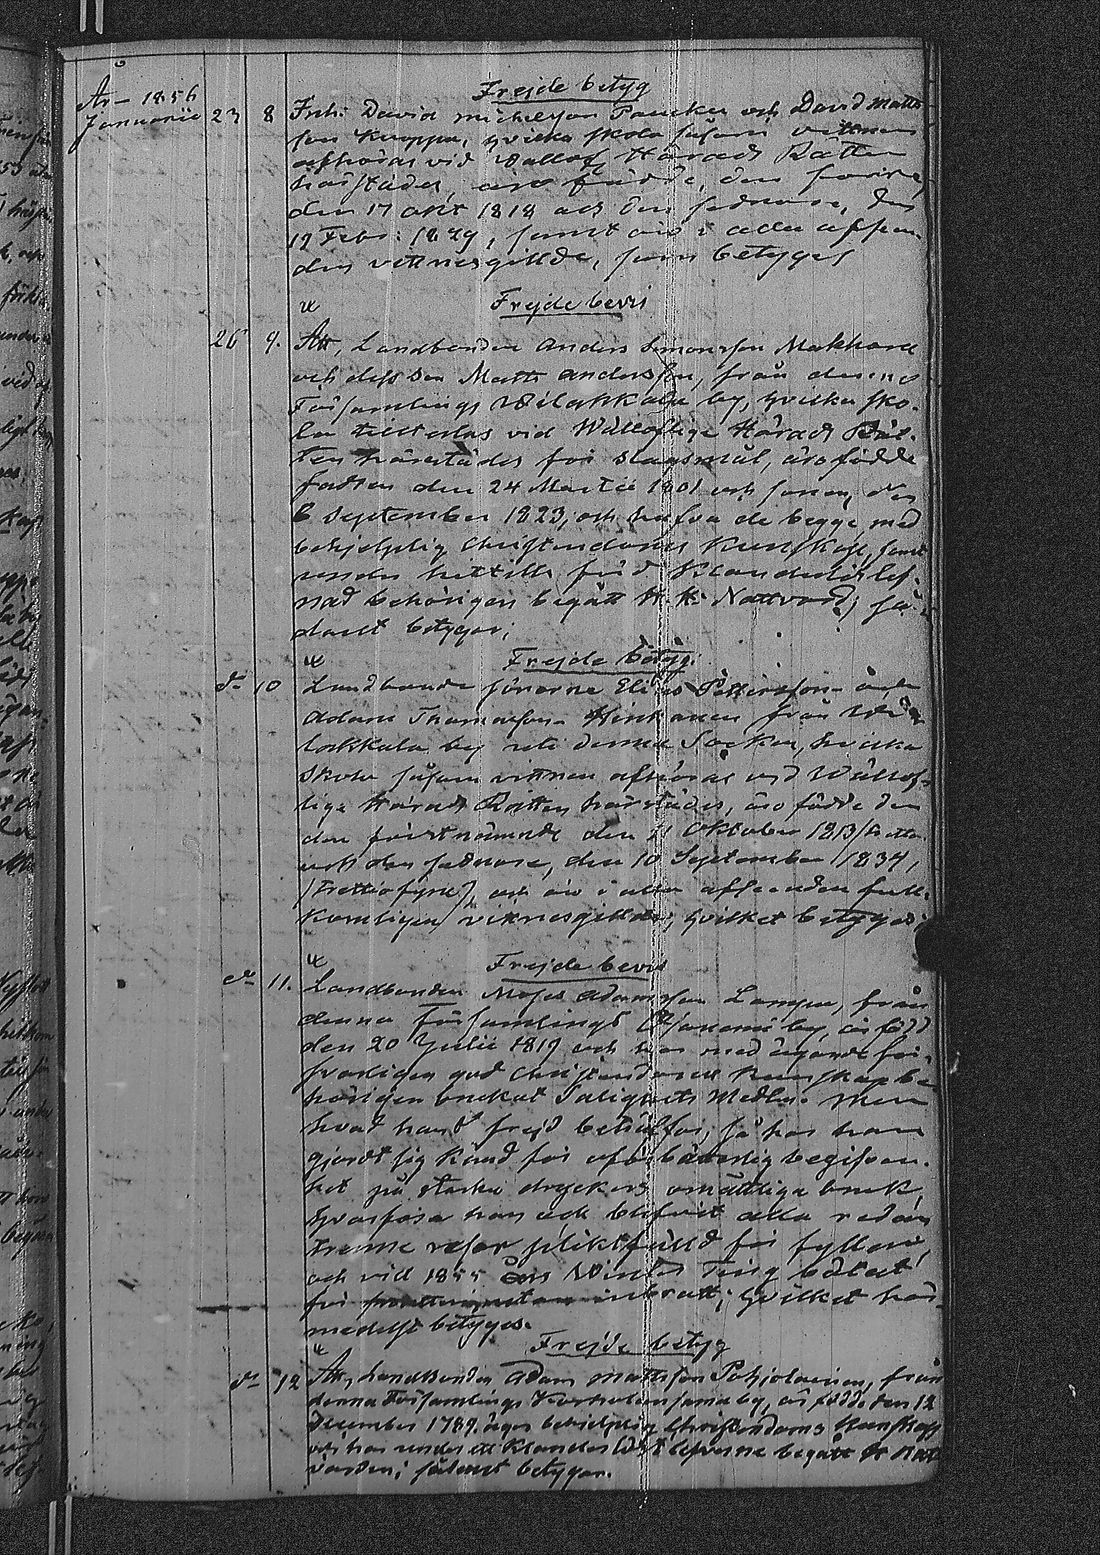 År 1856
Januarii
Frejde betyg
23 8 David Michelsson och David Matts-
son Kruppa, hvilka skola såsom vittnen
afhöras vid Wällofl. Härads Rätten
härstädes, äro födde, den förre,
den 17 Okt 1818 och den sednare, den
12 Febr: 1829, samt äro i alla afseen-
den vittnesgillde, som betyges
Frejdebevis
26 9. Att, Landbonden Anders Simonsson Makkare
och dess Son Matts Andersson, från denne
Församlings by, hvilka sko-
la tilltalas vid Wälloflige Härads Rät-
ten härstädes för slagsmål, äro födde
fadren den 24 Martii 1801 och sonen den
6 September 1823, och hafva de begge med
behjelplig Christendoms Kunskap, samt
under hittills förd Klanderlös lef-
nad behörigen begått H. H. Nattvard; så-
dant betygar.
Frejde betyg.
d- 10 Landbonde sönerne Elias Pettersson och
Adam Thomasson Hinkanen från
lakkala by uti denna Socken, hvilka
skola såsom vittnen afhöras vid Wällof-
lige Härads Rätten härstädes, äro födde den
den förstnämnde den 21 Oktober 1813
och den sednare, den 10 September 1834,
/Trettiofyra/, och äro i alla afseenden full-
komligen vittnesgillde, hvilket betyges.
Frejde bevis
d- 11. Landbonden Moses Adamsson, från
denna Församlings by, är född
den 20 Julii 1819 och har med ägande för-
svarligen god Christendoms kunskap be-
hörigen brukat Salighets Medlen. Men
hvad hans frejd beträffar, så har han
gjordt sig känd för oförbätterlig begifven-
het på starka dryckers omåttliga bruk,
hvarföre han ock blifvit alla redan
trenne resor pliktfälld för fylleri,
och vid 1855 års Winter Ting bötat
för inbrott; hvilket här-
medelst betyges.
Frejde betyg
d- 12 Att, Landbonden Adam Mattsson Pohjolainen, från
denna Församlings by, är född den 12
December 1789, äger behjelplig Christendoms Kunskap
och har under ett Klanderlöst lefverne begått H. Natt-
varden; sådant betygar.